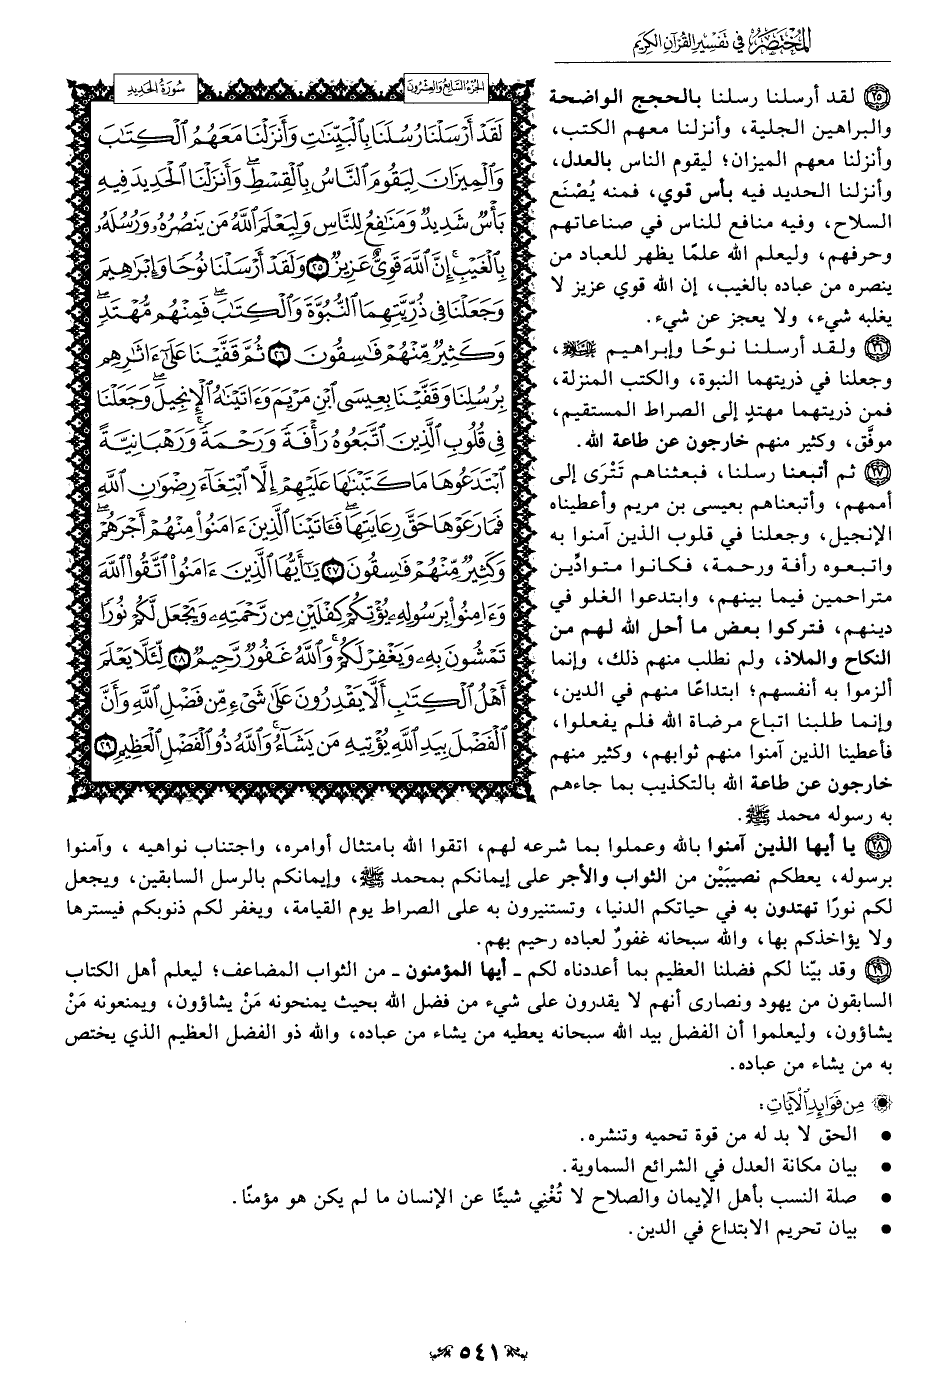 المختصر في تفسير القرآن الكريم
سورة الحديد
الجزء السابع والعشرون
لَقَدْ أَرْسَلْنَا رُسُلَنَا بِالْبَيِّنَاتِ وَأَنزَلْنَا مَعَهُمُ الْكِتَابَ
وَالْمِيزَانَ لِيَقُومَ النَّاسُ بِالْقِسْطِ ۖ وَأَنزَلْنَا الْحَدِيدَ فِيهِ
بَأْسٌ شَدِيدٌ وَمَنَافِعُ لِلنَّاسِ وَلِيَعْلَمَ اللَّهُ مَن يَنصُرُهُ وَرُسُلَهُ
بِالْغَيْبِ ۚ إِنَّ اللَّهَ قَوِيٌّ عَزِيزٌ ٢٥ وَلَقَدْ أَرْسَلْنَا نُوحًا وَإِبْرَاهِيمَ
وَجَعَلْنَا فِي ذُرِّيَّتِهِمَا النُّبُوَّةَ وَالْكِتَابَ ۖ فَمِنْهُم مُّهْتَدٍ ۖ
وَكَثِيرٌ مِّنْهُمْ فَاسِقُونَ ٢٦ ثُمَّ قَفَّيْنَا عَلَىٰ ءَاثَارِهِم
بِرُسُلِنَا وَقَفَّيْنَا بِعِيسَى ابْنِ مَرْيَمَ وَءَاتَيْنَاهُ الْإِنجِيلَ ۖ وَجَعَلْنَا
فِي قُلُوبِ الَّذِينَ اتَّبَعُوهُ رَأْفَةً وَرَحْمَةً ۚ وَرَهْبَانِيَّةً
ابْتَدَعُوهَا مَا كَتَبْنَاهَا عَلَيْهِمْ إِلَّا ابْتِغَاءَ رِضْوَانِ اللَّهِ
فَمَا رَعَوْهَا حَقَّ رِعَايَتِهَا ۖ فَـَٔاتَيْنَا الَّذِينَ ءَامَنُوا مِنْهُمْ أَجْرَهُمْ ۖ
وَكَثِيرٌ مِّنْهُمْ فَاسِقُونَ ٢٧ يَا أَيُّهَا الَّذِينَ ءَامَنُوا اتَّقُوا اللَّهَ
وَءَامِنُوا بِرَسُولِهِ يُؤْتِكُمْ كِفْلَيْنِ مِن رَّحْمَتِهِ وَيَجْعَل لَّكُمْ نُورًا
تَمْشُونَ بِهِ وَيَغْفِرْ لَكُمْ ۚ وَاللَّهُ غَفُورٌ رَّحِيمٌ ٢٨ لِّئَلَّا يَعْلَمَ
أَهْلُ الْكِتَابِ أَلَّا يَقْدِرُونَ عَلَىٰ شَيْءٍ مِّن فَضْلِ اللَّهِ وَأَنَّ
الْفَضْلَ بِيَدِ اللَّهِ يُؤْتِيهِ مَن يَشَاءُ ۚ وَاللَّهُ ذُو الْفَضْلِ الْعَظِيمِ ٢٩
٢٥ لقد أرسلنا رسلنا بالحجج الواضحة
والبراهين الجلية، وأنزلنا معهم الكتب،
وأنزلنا معهم الميزان؛ ليقوم الناس بالعدل،
وأنزلنا الحديد فيه بأس قوي، فمنه يُصْنَع
السلاح، وفيه منافع للناس في صناعاتهم
وحرفهم، وليعلم الله علمًا يظهر للعباد من
ينصره من عباده بالغيب، إن الله قوي عزيز لا
يغلبه شيء، ولا يعجز عن شيء.
٢٦ ولقد أرسلنا نوحًا وإبراهيم ﵉،
وجعلنا في ذريتهما النبوة، والكتب المنزلة،
فمن ذريتهما مهتدٍ إلى الصراط المستقيم،
موفَّق، وكثير منهم خارجون عن طاعة الله.
٢٧ ثم أتبعنا رسلنا، فبعثناهم تَتْرَى إلى
أممهم، وأتبعناهم بعيسى بن مريم وأعطيناه
الإنجيل، وجعلنا في قلوب الذين آمنوا به
واتبعوه رأفة ورحمة، فكانوا متوادِّين
متراحمين فيما بينهم، وابتدعوا الغلو في
دينهم، فتركوا بعض ما أحل الله لهم من
النكاح والملاذ، ولم نطلب منهم ذلك، وإنما
ألزموا به أنفسهم؛ ابتداعًا منهم في الدين،
وإنما طلبنا اتباع مرضاة الله فلم يفعلوا،
فأعطينا الذين آمنوا منهم ثوابهم، وكثير منهم
خارجون عن طاعة الله بالتكذيب بما جاءهم
به رسوله محمد ﷺ.
٢٨ يا أيها الذين آمنوا بالله وعملوا بما شرعه لهم، اتقوا الله بامتثال أوامره، واجتناب نواهيه ، وآمنوا
برسوله، يعطكم نصيبَيْن من الثواب والأجر على إيمانكم بمحمد ﷺ، وإيمانكم بالرسل السابقين، ويجعل
لكم نورًا تهتدون به في حياتكم الدنيا، وتستنيرون به على الصراط يوم القيامة، ويغفر لكم ذنوبكم فيسترها
ولا يؤاخذكم بها، والله سبحانه غفورٌ لعباده رحيم بهم.
٢٩ وقد بيّنا لكم فضلنا العظيم بما أعددناه لكم ـ أيها المؤمنون ـ من الثواب المضاعف؛ ليعلم أهل الكتاب
السابقون من يهود ونصارى أنهم لا يقدرون على شيء من فضل الله بحيث يمنحونه مَنْ يشاؤون، ويمنعونه مَنْ
يشاؤون، وليعلموا أن الفضل بيد الله سبحانه يعطيه من يشاء من عباده، والله ذو الفضل العظيم الذي يختص
به من يشاء من عباده.
مِن فَوَائِدِ الْآيَاتِ:
• الحق لا بد له من قوة تحميه وتنشره.
• بيان مكانة العدل في الشرائع السماوية.
• صلة النسب بأهل الإيمان والصلاح لا تُغْنِي شيئًا عن الإنسان ما لم يكن هو مؤمنًا.
• بيان تحريم الابتداع في الدين.
٥٤١